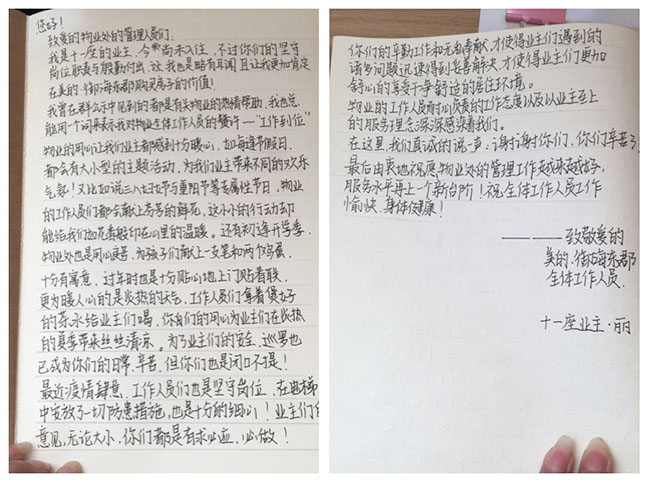 您好!
致敬爱的物业处的管理人员们:
我是十一座的业主,今尚未入住,不过你们的坚守
岗位职责与殷勤付出,让我也是略有耳闻且让我更加肯定
在美的·御海东郡购买房子的价值!
我曾在群公示中见到的都是有关物业的热情帮助,我也总
能用一个词来表示我对物业全体工作人员的赞许—"工作到位"
物业的用心让我们业主都感到十分暖心,如每逢节假日,
都会有大小型的主题活动,为我们业主带来不同的欢乐
气氛!又比如说三八妇女节与重阳节等专属性节日,物业
的工作人员们都会献上芬芳的鲜花,这小小的行动却
能给我们如花香般印在心里的温暖。还有初逢开学季,
物业处也是用心良苦,为孩子们献上一支笔和两个鸡蛋,
十分有寓意,过年时也是十分贴心地上门贴春联,
更为暖人心的是炎热的天气,工作人员们拿着煲好
的茶水给业主们喝,你们的用心为业主们在炎热
的夏季带来丝丝清凉。为了业主们的安全,巡逻也
已成为你们的日常,辛苦,但你们也是闭口不提!
最近疫情肆意,工作人员们也是坚守岗位,在电梯
中安放了一切防患措施,也是十分的细心!业主们的
意见,无论大小,你们都是有求必应,必做!
你们的辛勤工作和无私奉献,才使得业主们遇到的
诸多问题迅速得到妥善解决,才使得业主们更加
舒心的享受干净舒适的居住环境。
物业的工作人员耐心负责的工作态度以及以业主至上
的服务理念深深感染着我们。
在这里,我们真诚的说一声:谢谢谢你们,你们辛苦了
最后由衷地祝愿物业处的管理工作越来越好,
服务水平再上一个新台阶!祝全体工作人员工作
愉快,身体健康!
———致敬爱的
美的·御海东郡
全体工作人员.
十一座业主·丽